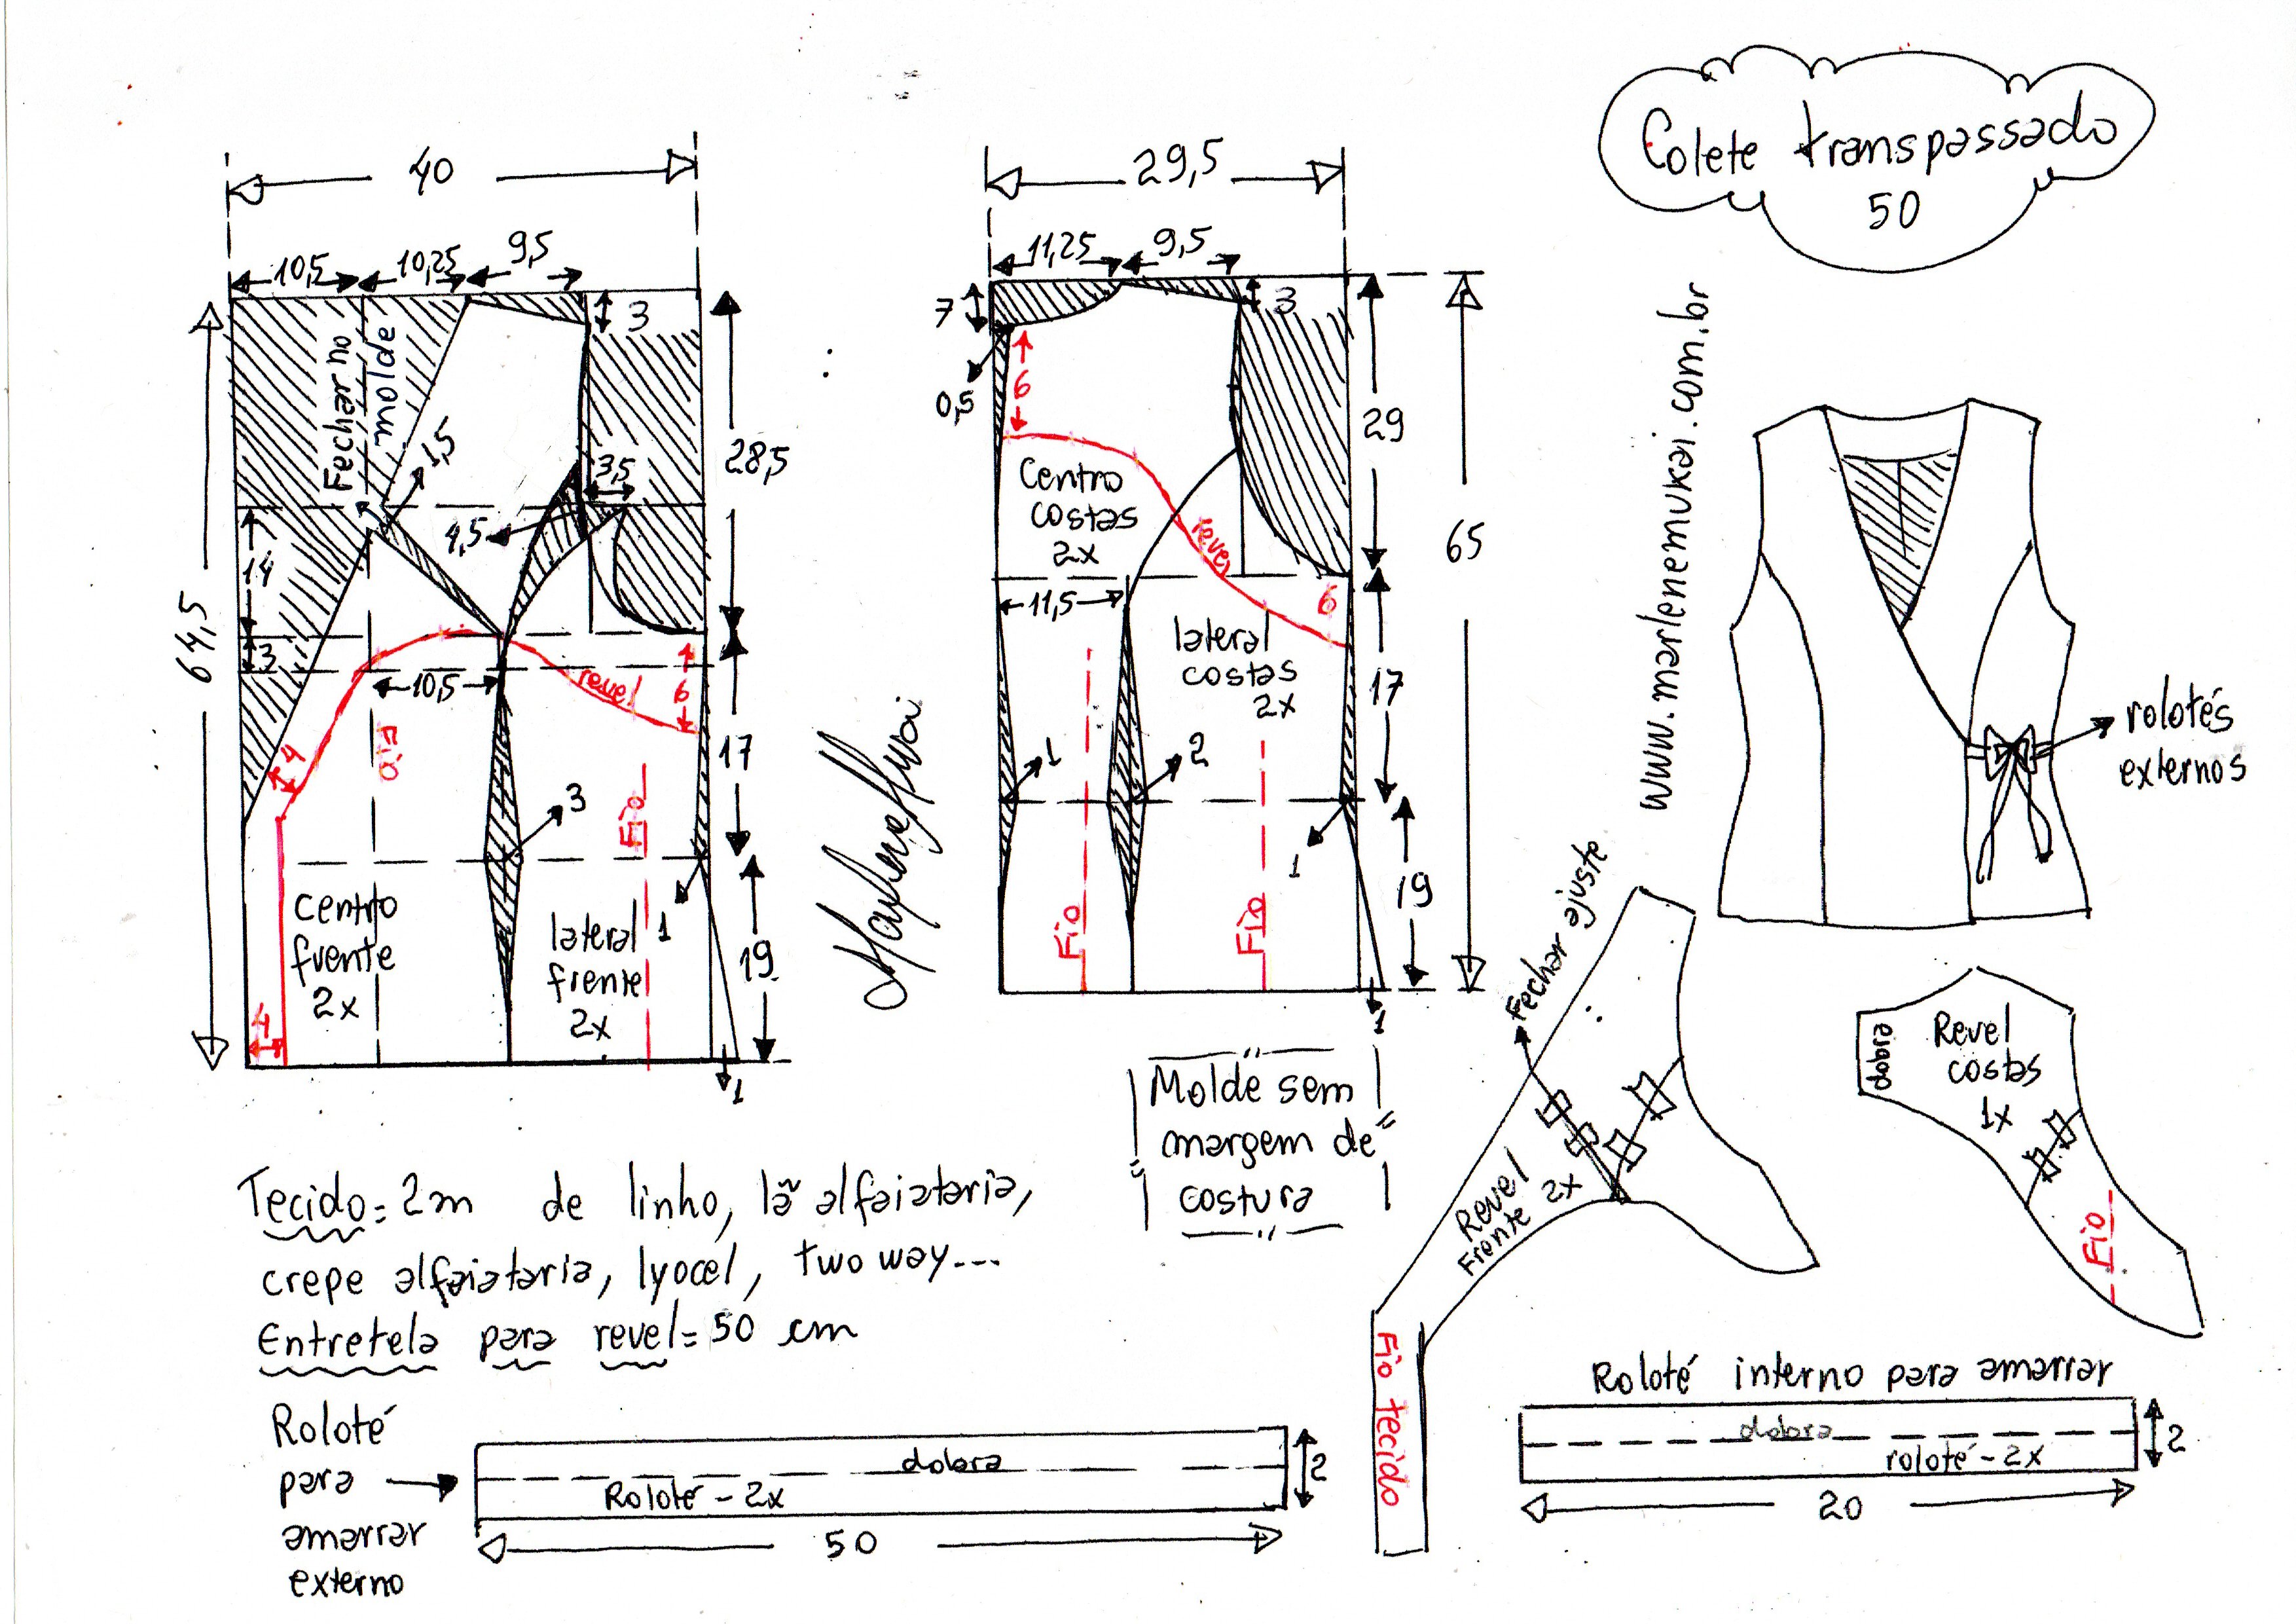 Colete transpassado
50
40
10,5
10,25
9,5
3
Fechar no
molde
1,5
28,5
3,5
4,5
14
64,5
3
10,5
revel
6
Fio
4
17
3
Fio
1
Centro
frente
2x
lateral
frente
2x
19
4
1
29,5
11,25
9,5
7
3
0,5
6
29
65
Centro
costas
2x
revel
11,5
6
lateral
costas
2x
17
1
2
1
19
Fio
Fio
1
www.marlenemukai.com.br
rolotés
externos
Molde sem
margem de
costura
Tecido= 2m de linho, lã alfaiataria,
crepe alfaiataria, lyocel, two way...
Entretela para revel= 50 cm
Fechar ajuste
Revel
Frente 2x
Fio tecido
dobra
Revel
costas
1x
Fio
Roloté
para
amarrar
externo
dobra
Roloté - 2x
2
50
Roloté interno para amarrar
dobra
roloté - 2x
2
20